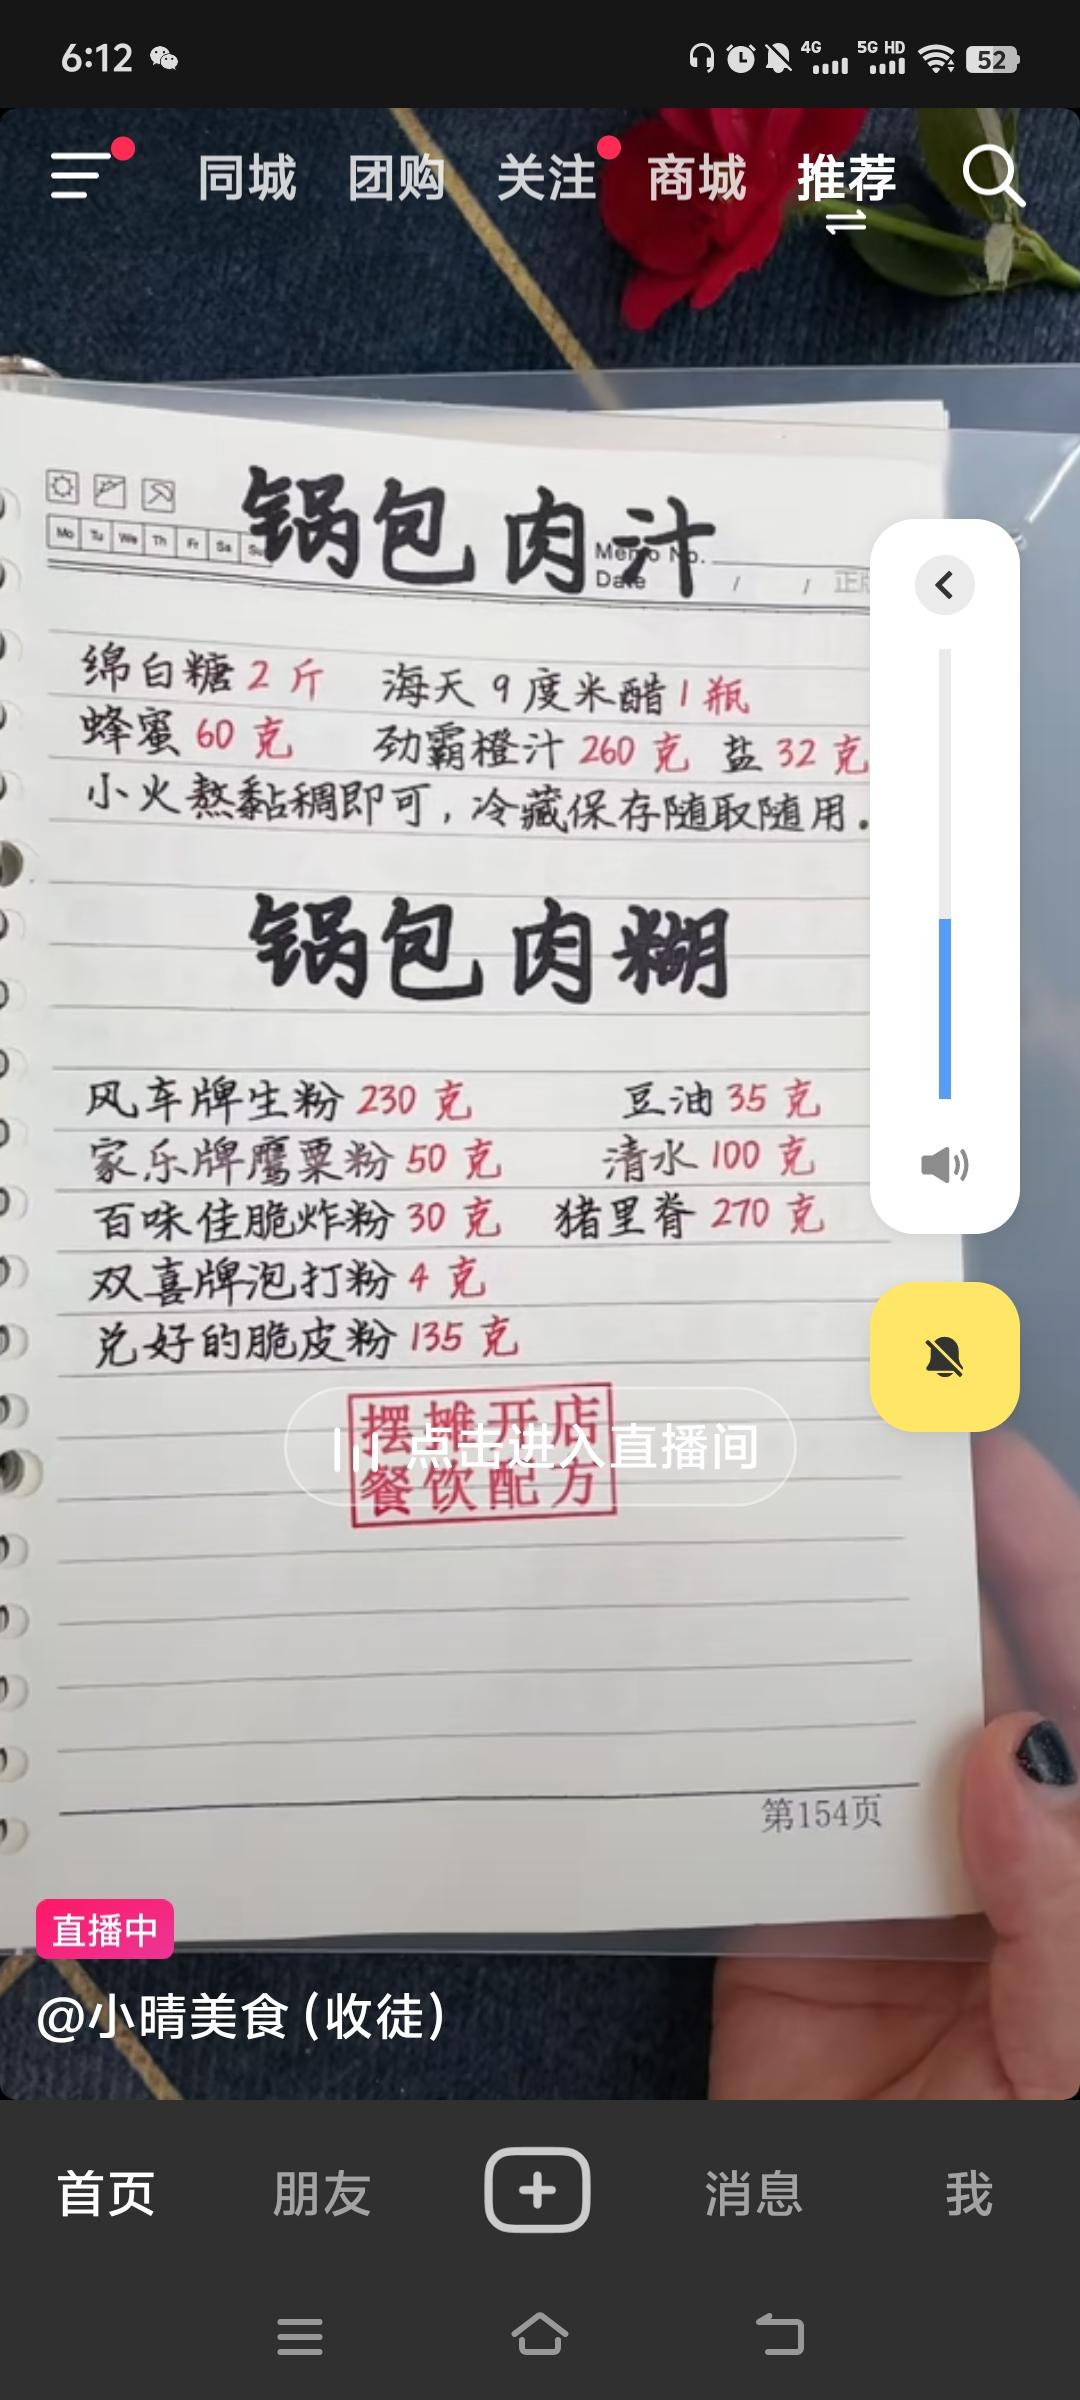 6:12
4G 5G HD 52
同城 团购 关注 商城 推荐
锅包肉汁
Mo Tu We Th Fr Sa Su
Memo No.
Date / /
绵白糖 2 斤 海天 9 度米醋 1 瓶
蜂蜜 60 克 劲霸橙汁 260 克 盐 32 克
小火熬黏稠即可，冷藏保存随取随用.
锅包肉糊
风车牌生粉 230 克 豆油 35 克
家乐牌鹰粟粉 50 克 清水 100 克
百味佳脆炸粉 30 克 猪里脊 270 克
双喜牌泡打粉 4 克
兑好的脆皮粉 135 克
摆摊开店
点击进入直播间
餐饮配方
第154页
直播中
@小晴美食(收徒)
首页 朋友 消息 我